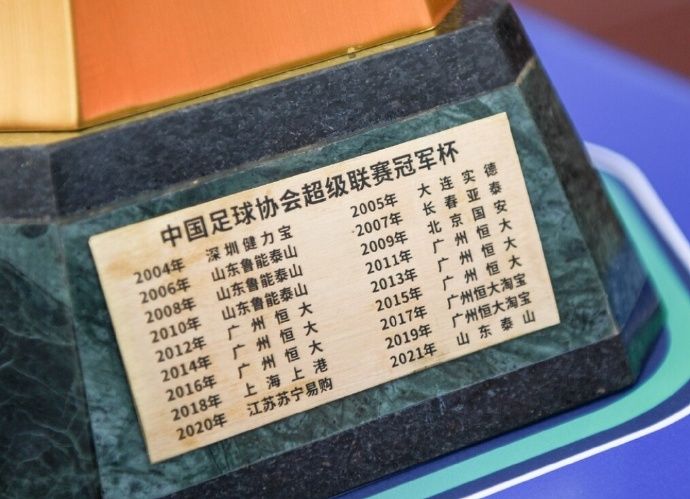 中国足球协会超级联赛冠军杯
2004年 深圳健力宝
2006年 山东鲁能泰山
2008年 山东鲁能泰山
2010年 山东鲁能泰山
2012年 广州恒大
2014年 广州恒大
2016年 广州恒大
2018年 上海上港
2020年 江苏苏宁易购
2005年 大连实德
2007年 长春亚泰
2009年 北京国安
2011年 广州恒大
2013年 广州恒大
2015年 广州恒大
2017年 广州恒大淘宝
2019年 广州恒大淘宝
2021年 山东泰山